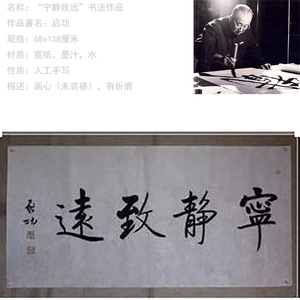 名称：“宁静致远”书法作品
作品署名：启功
规格：68x138厘米
材质：宣纸，墨汁，水
性质：人工手写
描述：画心（未装裱），有折痕
寧静致遠
启功